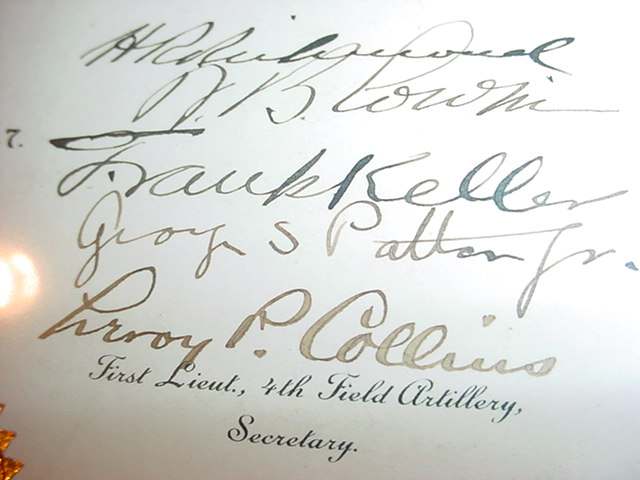 H R Richmond
7.
Frank Keller
George S Patton Jr.
Leroy P. Collins
First Lieut., 4th Field Artillery,
Secretary.